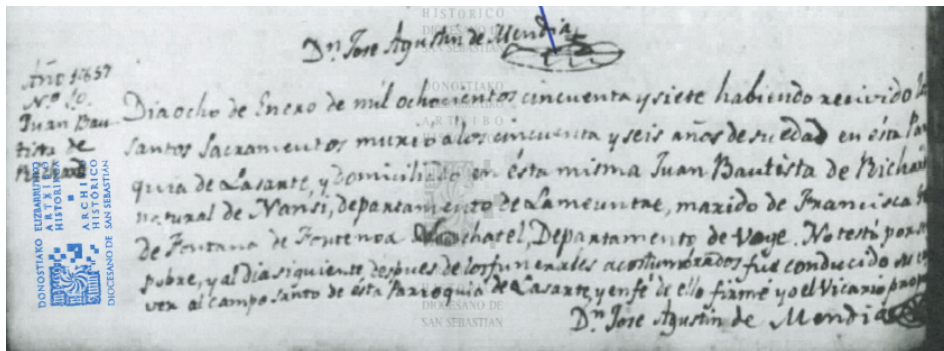 HISTORICO
DIOCESANO DE
SAN SEBASTIAN
Dn. Jose Agustin de Mendia
Año 1857
Nº 10.
Juan Bau
tista de
DONOSTIAKO ELIZBARRUTIKO
ARTXIBO
HISTORIKOA
ARCHIVO
HISTÓRICO
DIOCESANO DE SAN SEBASTIÁN
Dia ocho de Enero de mil ochocientos cincuenta y siete habiendo recivido
santos Sacramentos murio a los cincuenta y seis años de su edad en ésta Par
quia de Lasarte, y domiciliado en ésta misma Juan Bautista de Bichar
natural de Nansi, departamento de Lameurtae, marido de Francisca
de Fontana de Fontenoa Chatel, Departamento de Voge. No testó por
pobre, y al dia siguiente, despues de los funerales acostumbrados fue conducido su
ver al campo santo de ésta Parroquia de Lasarte, y en fé de ello firmé yo el Vicario prop
Dn. Jose Agustin de Mendia
DIOCESANO DE
SAN SEBASTIAN